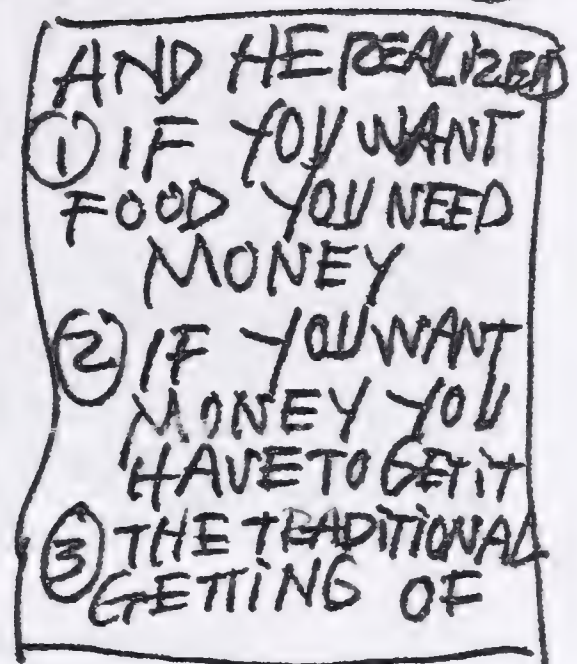 AND HE REALIZED
① IF YOU WANT
FOOD YOU NEED
MONEY
② IF YOU WANT
MONEY YOU
HAVE TO GET IT
③ THE TRADITIONAL
GETTING OF